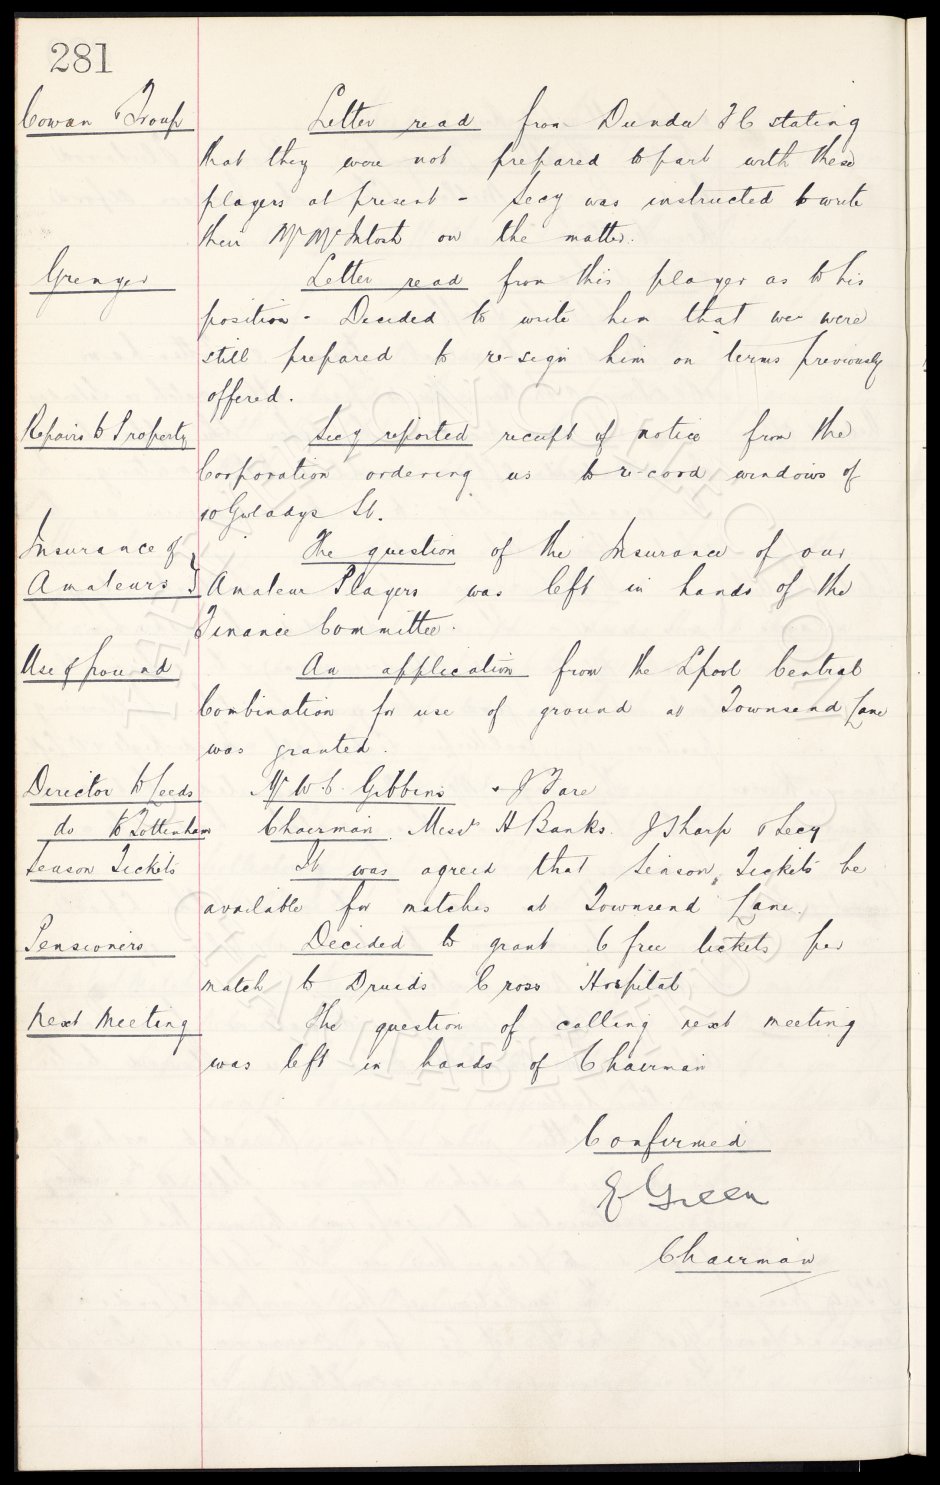 281
Cowan & Troup Letter read from Dundee F C stating
that they were not prepared to part with these
players at present - Secy was instructed to write
their Mr McIntosh on the matter.
Grenyer Letter read from this player as to his
position - Decided to write him that we were
still prepared to re-sign him on terms previously
offered.
Repairs to Property Secy reported receipt of notice from the
Corporation ordering us to re-cord windows of
10 Gwladys St.
Insurance of The question of the Insurance of our
Amateurs Amateur Players was left in hands of the
Finance Committee.
Use of ground An application from the Lpool Central
Combination for use of ground at Townsend Lane
was granted.
Director to Leeds Mr W. C. Gibbins + J Fare
do to Tottenham Chairman Messrs H Banks. J Sharp & Secy
Season Tickets It was agreed that Season Tickets be
available for matches at Townsend Lane.
Pensioners Decided to grant 6 free tickets per
match to Druids Cross Hospital
Next Meeting The question of calling next meeting
was left in hands of Chairman
Confirmed
E Green
Chairman